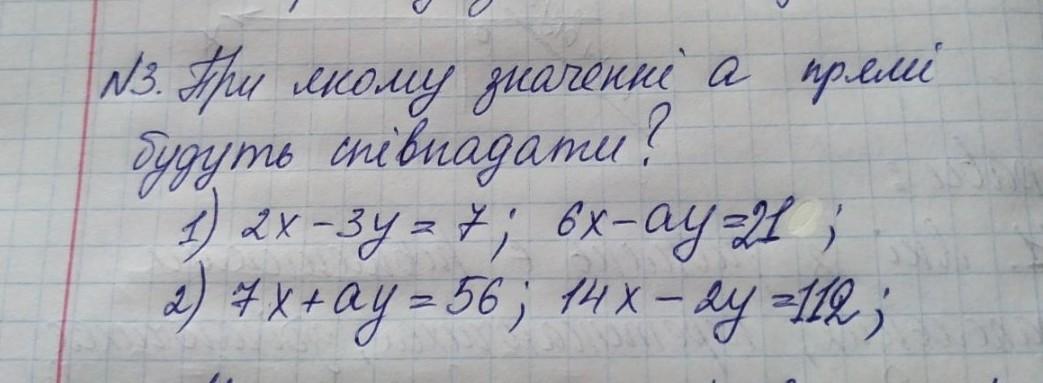 №3. При якому значенні а прямі
будуть співпадати?
1) 2x - 3y = 7; 6x - ay = 21;
2) 7x + ay = 56; 14x - 2y = 112;